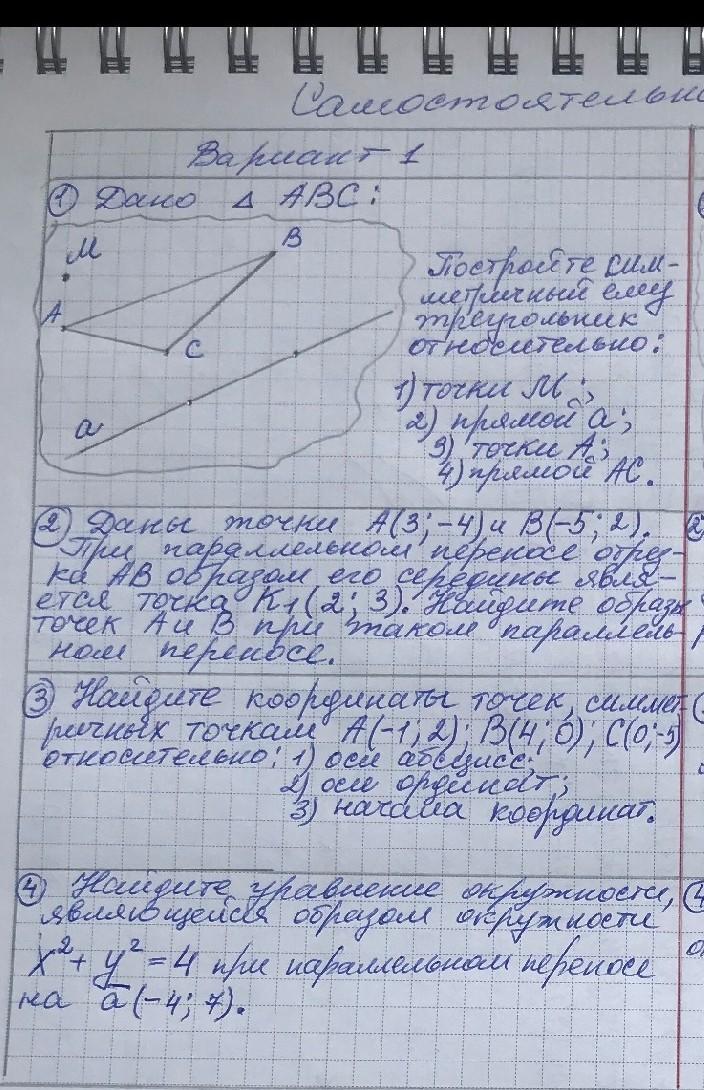 Самостоятельн
Вариант 1
① Дано △ ABC:
M
B
A
C
a
Постройте сим-
метричный ему
треугольник
относительно:
1) точки M;
2) прямой a;
3) точки A;
4) прямой AC.
② Даны точки A(3; -4) и B(-5; 2).
При параллельном переносе отрез-
ка AB образом его середины явля-
ется точка K₁(2; 3). Найдите образы
точек A и B при таком параллель-
ном переносе.
③ Найдите координаты точек, симмет-
ричных точкам A(-1; 2); B(4; 0); C(0; -5)
относительно: 1) оси абсцисс;
2) оси ординат;
3) начала координат.
④ Найдите уравнение окружности,
являющейся образом окружности
x² + y² = 4 при параллельном переносе
на a̅ (-4; 7).